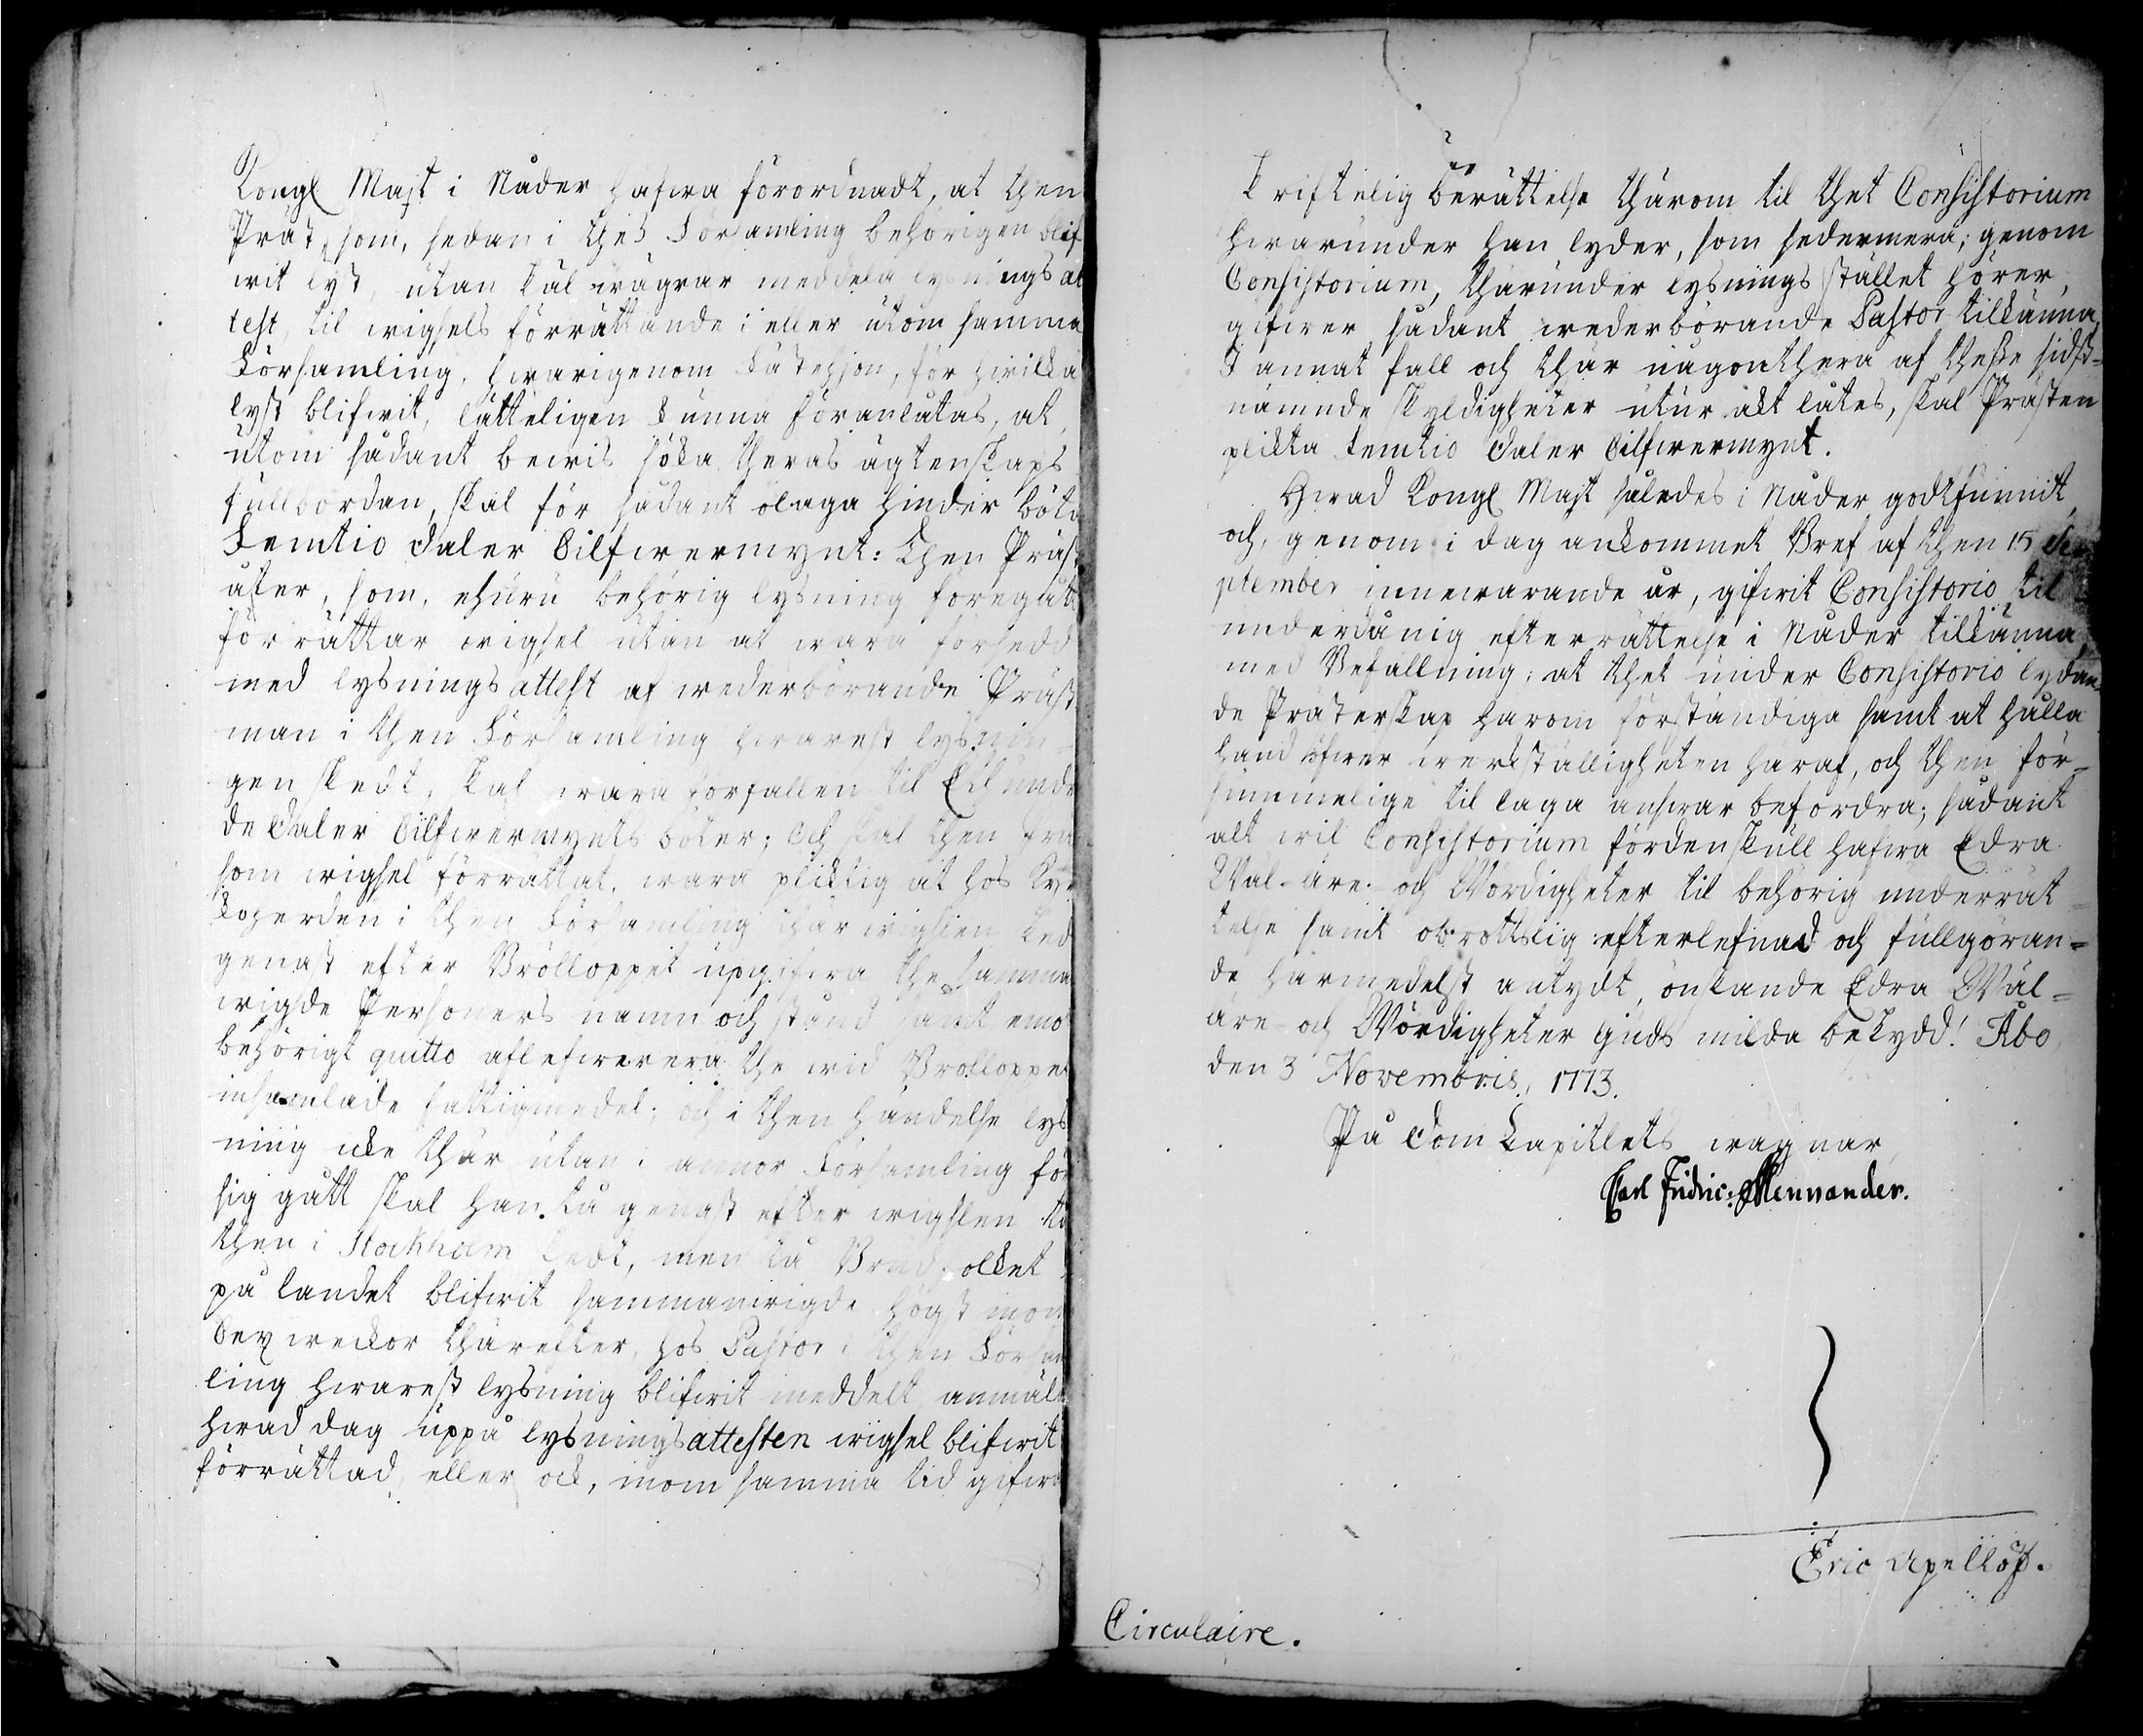 Kongl Majst i Nåder hafwa förordnadt, at then
Präst, som, sedan i thes Församling behörigen blif
wit lyst, utan skäl wägrar meddela lysnings at
test, til wigsels förrättande i eller utom samma
Församling, hwarigenom Fästehjon, för hwilka
lyst blifwit, lätteligen kunna föranlåtas, at,
utom sådant bewis söka theras ägtenskaps
fullbordan, skal för sådant olaga hinder böta
Femtio daler Silfwermynt: Then Präst
åter, som, ehuru behörig lysning föregått
förrättar wigsel utan at wara försedd
med lysnings attest af wederbörande Präst
man i then Församling hwarest lysnin-
gen skedt, skal wara förfallen til Etthundra
de daler Silfwermynts böter; Och skal then Prä
som wigsel förrättat, wara pliktig at hos Kyr
koherden i then Församling thär wigslen sked
genast efter Brölloppet upgifwa the samma
wigde Personers namn och stånd samt emo
behörigt quitto aflefwerera the wid Bröllopet
insamlade fattigmedel; och i then händelse lys
ning icke thär utan i annor Församling för
sig gått skal han tå genast efter wigslen tå
then i Stockholm skedt, men tå Brudfolket
på landet blifwit sammanwigde högst inom
Sex weckor thärefter, hos Pastor i then Försam
ling hwarest lysning blifwit meddelt anmäla
hwad dag uppå lysningsattesten wigsel blifwit
förrättad, eller ock, inom samma tid gifwa
skriftelig berättelse thärom til thet Consistorium
hwarunder han lyder, som sedermera, genom
Consistorium, thärunder lysnings stället hörer,
gifwer sådant wederbörande Pastor tillkänna.
I annat fall och thär någonthera af thesse sidst=
nämnde skyldigheter utur akt låtes, skal Prästen
plikta femtio daler Silfwermynt.
Hwad Kongl Majst således i Nåder godtfunnit,
och, genom i dag ankommet Bref af then 15 Se
ptember innewarande år, gifwit Consistorio til
underdånig efterrättelse i Nåder tilkänna,
med Befallning, at thet under Consistorio lydan
de Prästerskap härom förständiga samt at hålla
hand öfwer werkställigheten häraf, och then för-
summelige til laga answar befordra; sådant
alt wil Consistorium fördenskull hafwa Edra
Wäl-äre- och Wördigheter til behörig underrät=
telse samt obrottslig efterlefnad och fullgöran=
de härmedelst antydt, önskande Edra Wäl=
äre- och Wördigheter Guds milda beskydd! Åbo
den 3 Novembris, 1773.
På Dom Capitlets wägnar,
Carl Fridric: Mennander.
Eric Apellöf.
Circulaire.